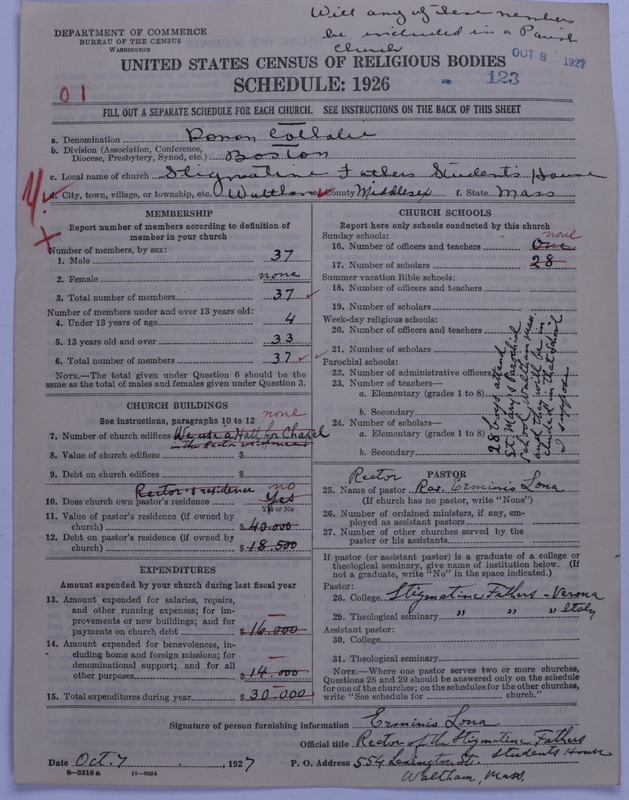 Will any of these members
be included in a Parish
Church
DEPARTMENT OF COMMERCE
BUREAU OF THE CENSUS
WASHINGTON
OCT 8 1927
UNITED STATES CENSUS OF RELIGIOUS BODIES
SCHEDULE: 1926
123
01
FILL OUT A SEPARATE SCHEDULE FOR EACH CHURCH. SEE INSTRUCTIONS ON THE BACK OF THIS SHEET
a. Denomination Roman Catholic
b. Division (Association, Conference,
Diocese, Presbytery, Synod, etc.) Boston
c. Local name of church Stigmatine Fathers Student's House
d. City, town, village, or township, etc. Waltham County Middlesex f. State Mass
MEMBERSHIP
Report number of members according to definition of
member in your church
Number of members, by sex:
1. Male 37
2. Female none
3. Total number of members 37
Number of members under and over 13 years old:
4. Under 13 years of age 4
5. 13 years old and over 33
6. Total number of members 37
NOTE.—The total given under Question 6 should be the
same as the total of males and females given under Question 3.
CHURCH BUILDINGS
See instructions, paragraphs 10 to 12
none
7. Number of church edifices We use a Hall for Chapel
in the Rector residence
8. Value of church edifices $
9. Debt on church edifices $
Rector's residence no
10. Does church own pastor's residence Yes
Yes or No
11. Value of pastor's residence (if owned by
church) $ 40.000
12. Debt on pastor's residence (if owned by
church) $ 18.500
EXPENDITURES
Amount expended by your church during last fiscal year
13. Amount expended for salaries, repairs,
and other running expenses; for im-
provements or new buildings; and for
payments on church debt $ 16.000
14. Amount expended for benevolences, in-
cluding home and foreign missions; for
denominational support; and for all
other purposes $ 14.000
15. Total expenditures during year $ 30.000
CHURCH SCHOOLS
Report here only schools conducted by this church
Sunday schools:
none
16. Number of officers and teachers One
17. Number of scholars 28
Summer vacation Bible schools:
18. Number of officers and teachers
19. Number of scholars
Week-day religious schools:
20. Number of officers and teachers
21. Number of scholars
Parochial schools:
22. Number of administrative officers
23. Number of teachers—
a. Elementary (grades 1 to 8)
b. Secondary
24. Number of scholars—
a. Elementary (grades 1 to 8)
b. Secondary
28 boys attend
St. Mary's Parochial
School, Waltham Mass.
and they will be in
cluded in that school
I suppose
Rector PASTOR
25. Name of pastor Rev. Erminio Lona
(If church has no pastor, write "None")
26. Number of ordained ministers, if any, em-
ployed as assistant pastors
27. Number of other churches served by the
pastor or his assistants
If pastor (or assistant pastor) is a graduate of a college or
theological seminary, give name of institution below. (If
not a graduate, write "No" in the space indicated.)
Pastor:
28. College Stigmatine Fathers - Verona
29. Theological seminary " " " Italy
Assistant pastor:
30. College
31. Theological seminary
NOTE.—Where one pastor serves two or more churches,
Questions 28 and 29 should be answered only on the schedule
for one of the churches; on the schedules for the other churches,
write "See schedule for church."
Signature of person furnishing information Erminio Lona
Official title Rector of the Stigmatine Fathers
Students House
Date Oct. 7, 1927 P. O. Address 554 Lexington St.
Waltham, Mass.
8-5518a 11-9054